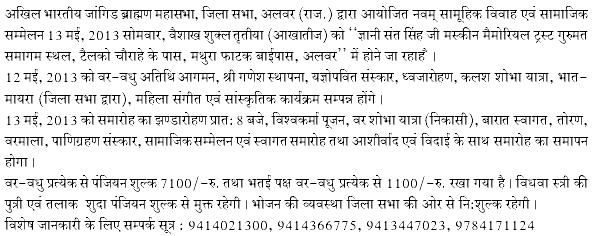 अखिल भारतीय जांगिड ब्राह्मण महासभा, जिला सभा, अलवर (राज.) द्वारा आयोजित नवम् सामूहिक विवाह एवं सामाजिक
सम्मेलन 13 मई, 2013 सोमवार, वैशाख शुक्ल तृतीया (आखातीज) को ‘‘ज्ञानी संत सिंह जी मस्कीन मैमोरियल ट्रस्ट गुरुमत
समागम स्थल, टैलको चौराहे के पास, मथुरा फाटक बाईपास, अलवर’’ में होने जा रहाहै ।
12 मई, 2013 को वर-वधु अतिथि आगमन, श्री गणेश स्थापना, यज्ञोपवित संस्कार, ध्वजारोहण, कलश शोभा यात्रा, भात-
मायरा (जिला सभा द्वारा), महिला संगीत एवं सांस्कृतिक कार्यक्रम सम्पन्न होंगे ।
13 मई, 2013 को समारोह का झण्डारोहण प्रात: 8 बजे, विश्वकर्मा पूजन, वर शोभा यात्रा (निकासी), बारात स्वागत, तोरण,
वरमाला, पाणिग्रहण संस्कार, सामाजिक सम्मेलन एवं स्वागत समारोह तथा आशीर्वाद एवं विदाई के साथ समारोह का समापन
होगा ।
वर-वधु प्रत्येक से पंजियन शुल्क 7100/-रु. तथा भतई पक्ष वर-वधु प्रत्येक से 1100/-रु. रखा गया है । विधवा स्त्री की
पुत्री एवं तलाक शुदा पंजियन शुल्क से मुक्त रहेगी । भोजन की व्यवस्था जिला सभा की ओर से नि:शुल्क रहेगी ।
विशेष जानकारी के लिए सम्पर्क सूत्र : 9414021300, 9414366775, 9413447023, 9784171124